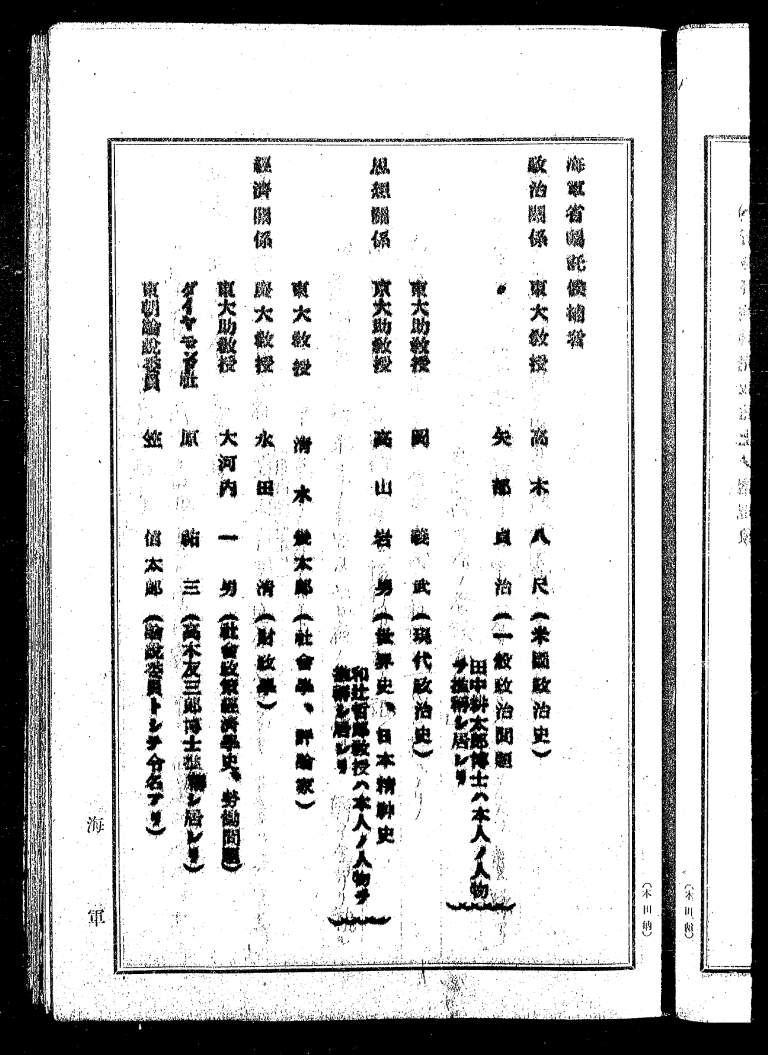 海軍省囑託候補者
政治關係 東大敎授 高木八尺(米國政治史)
〃 矢部貞治(一般政治問題
田中耕太郎博士ハ本人ノ人物
ヲ推稱シ居レリ)
東大助敎授 岡義武(現代政治史)
思想關係 京大助敎授 高山岩男(世界史、日本精神史
和辻哲郎敎授ハ本人ノ人物ヲ
推稱シ居レリ)
東大敎授 淸水幾太郎(社會學、評論家)
經濟關係 慶大敎授 永田淸(財政學)
東大助敎授 大河內一男(社會政策經濟學史、勞働問題)
ダイヤモンド社 原祐三(高木友三郎博士推稱シ居レリ)
東朝論說委員 笠信太郎(論說委員トシテ令名アリ)
海軍